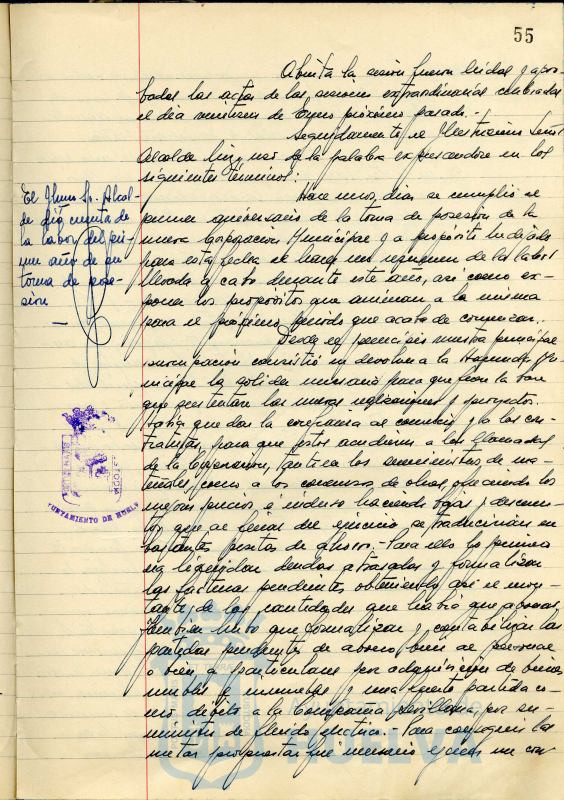 55
Abierta la sesión fueron leidas y apro-
badas las actas de las sesiones extraordinarias celebradas
el día veintiseis de Enero próximo pasado.-
Seguidamente, el Ilustrísimo Señor
Alcalde hizo uso de la palabra expresandose en los
siguientes términos:
El Ilmo Sr. Alcal-
de dió cuenta de
la labor del pri-
mer año de su
toma de pose-
sión
Hace unos días se cumplió el
primer aniversario de la toma de posesión de la
nueva Corporación Municipal y a propósito he dejado
para esta fecha el hacer un resumen de la labor
llevada a cabo durante este año, así como ex-
poner los propósitos que animan a la misma
para el próximo periodo que acaba de comenzar.
Desde el principio nuestra principal
preocupación consistió en devolver a la Hacienda Mu-
nicipal la solidez necesaria para que fuera la base
que sustentara las nuevas realizaciones y proyectos.
Había que dar la confianza al comercio y a los con-
tratistas, para que estos acudieran a las llamadas
de la Corporación, tanto a los suministros de ma-
teriales, como a los concursos de obras, ofreciendo los
mejores precios e incluso haciendo bajas y descuen-
tos que al final del ejercicio, se traducirían en
bastantes pesetas de ahorro.- Para ello lo primero
era liquidar deudas atrasadas y formalizar
las facturas pendientes obteniendo así el mon-
tante de las cantidades que había que abonar.
También hubo que formalizar y contabilizar las
partidas pendientes de abono, bien al personal
o bien a particulares por adquisición de bienes
muebles e inmuebles y una fuerte partida co-
mo débito a la Compañía Sevillana por su-
ministro de fluido eléctrico. Para conseguir las
metas propuestas fué necesario ejercer un con
AYUNTAMIENTO DE HUELVA
Ayuntamiento de
HUELVA